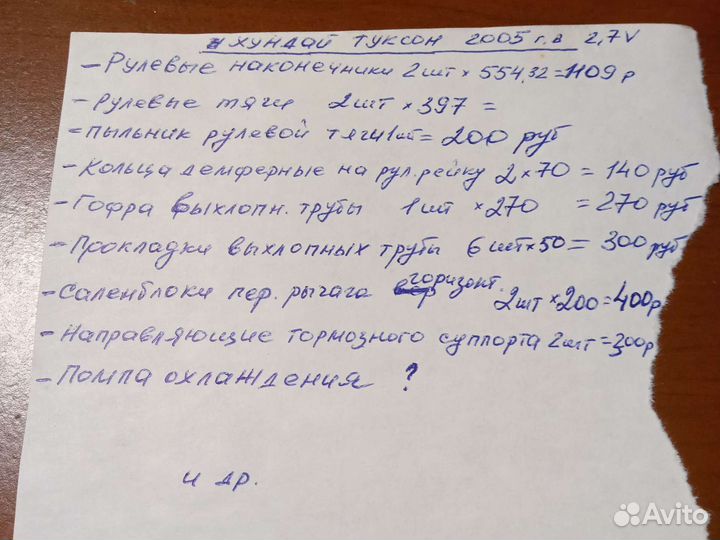 ХУНДАЙ ТУКСОН 2005 г.в 2,7V
- Рулевые наконечники 2 шт × 554,32 = 1109 р
- рулевые тяги 2 шт × 397 =
- пыльник рулевой тяги 1 шт = 200 руб
- Кольца демферные на рул. рейку 2 × 70 = 140 руб
- Гофра выхлопн. трубы 1 шт × 270 = 270 руб
- Прокладки выхлопных трубы 6 шт × 50 = 300 руб
- Саленблоки пер. рычага горизонт. 2 шт × 200 = 400 р
- Направляющие тормозного суппорта 2 шт = 300 р
- Помпа охлаждения ?
и др.
Avito